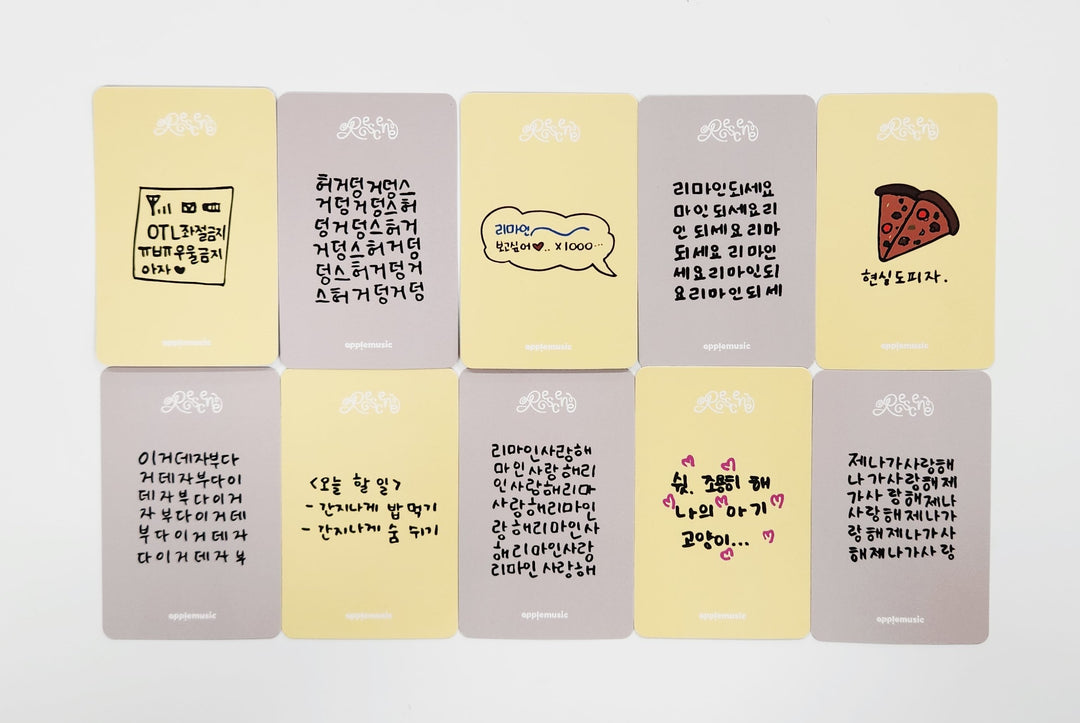 Rescene
OTL좌절금지
ㅠㅂㅠ우울금지
아자♥
applemusic
Rescene
허거덩거덩스
거덩거덩스허
덩거덩스허거
거덩스허거덩
덩스허거덩거
스허거덩거덩
applemusic
Rescene
리마인
보고싶어♥.. X1000...
applemusic
Rescene
리마인되세요
마인되세요리
인되세요리마
되세요리마인
세요리마인되
요리마인되세
applemusic
Rescene
현실도피자.
applemusic
Rescene
이거데자부다
거데자부다이
데자부다이거
자부다이거데
부다이거데자
다이거데자부
applemusic
Rescene
<오늘 할 일>
- 간지나게 밥 먹기
- 간지나게 숨 쉬기
applemusic
Rescene
리마인사랑해
마인사랑해리
인사랑해리마
사랑해리마인
랑해리마인사
해리마인사랑
리마인사랑해
applemusic
Rescene
쉿, 조용히 해
나의 아기
고양이...
applemusic
Rescene
제나가사랑해
나가사랑해제
가사랑해제나
사랑해제나가
랑해제나가사
해제나가사랑
applemusic